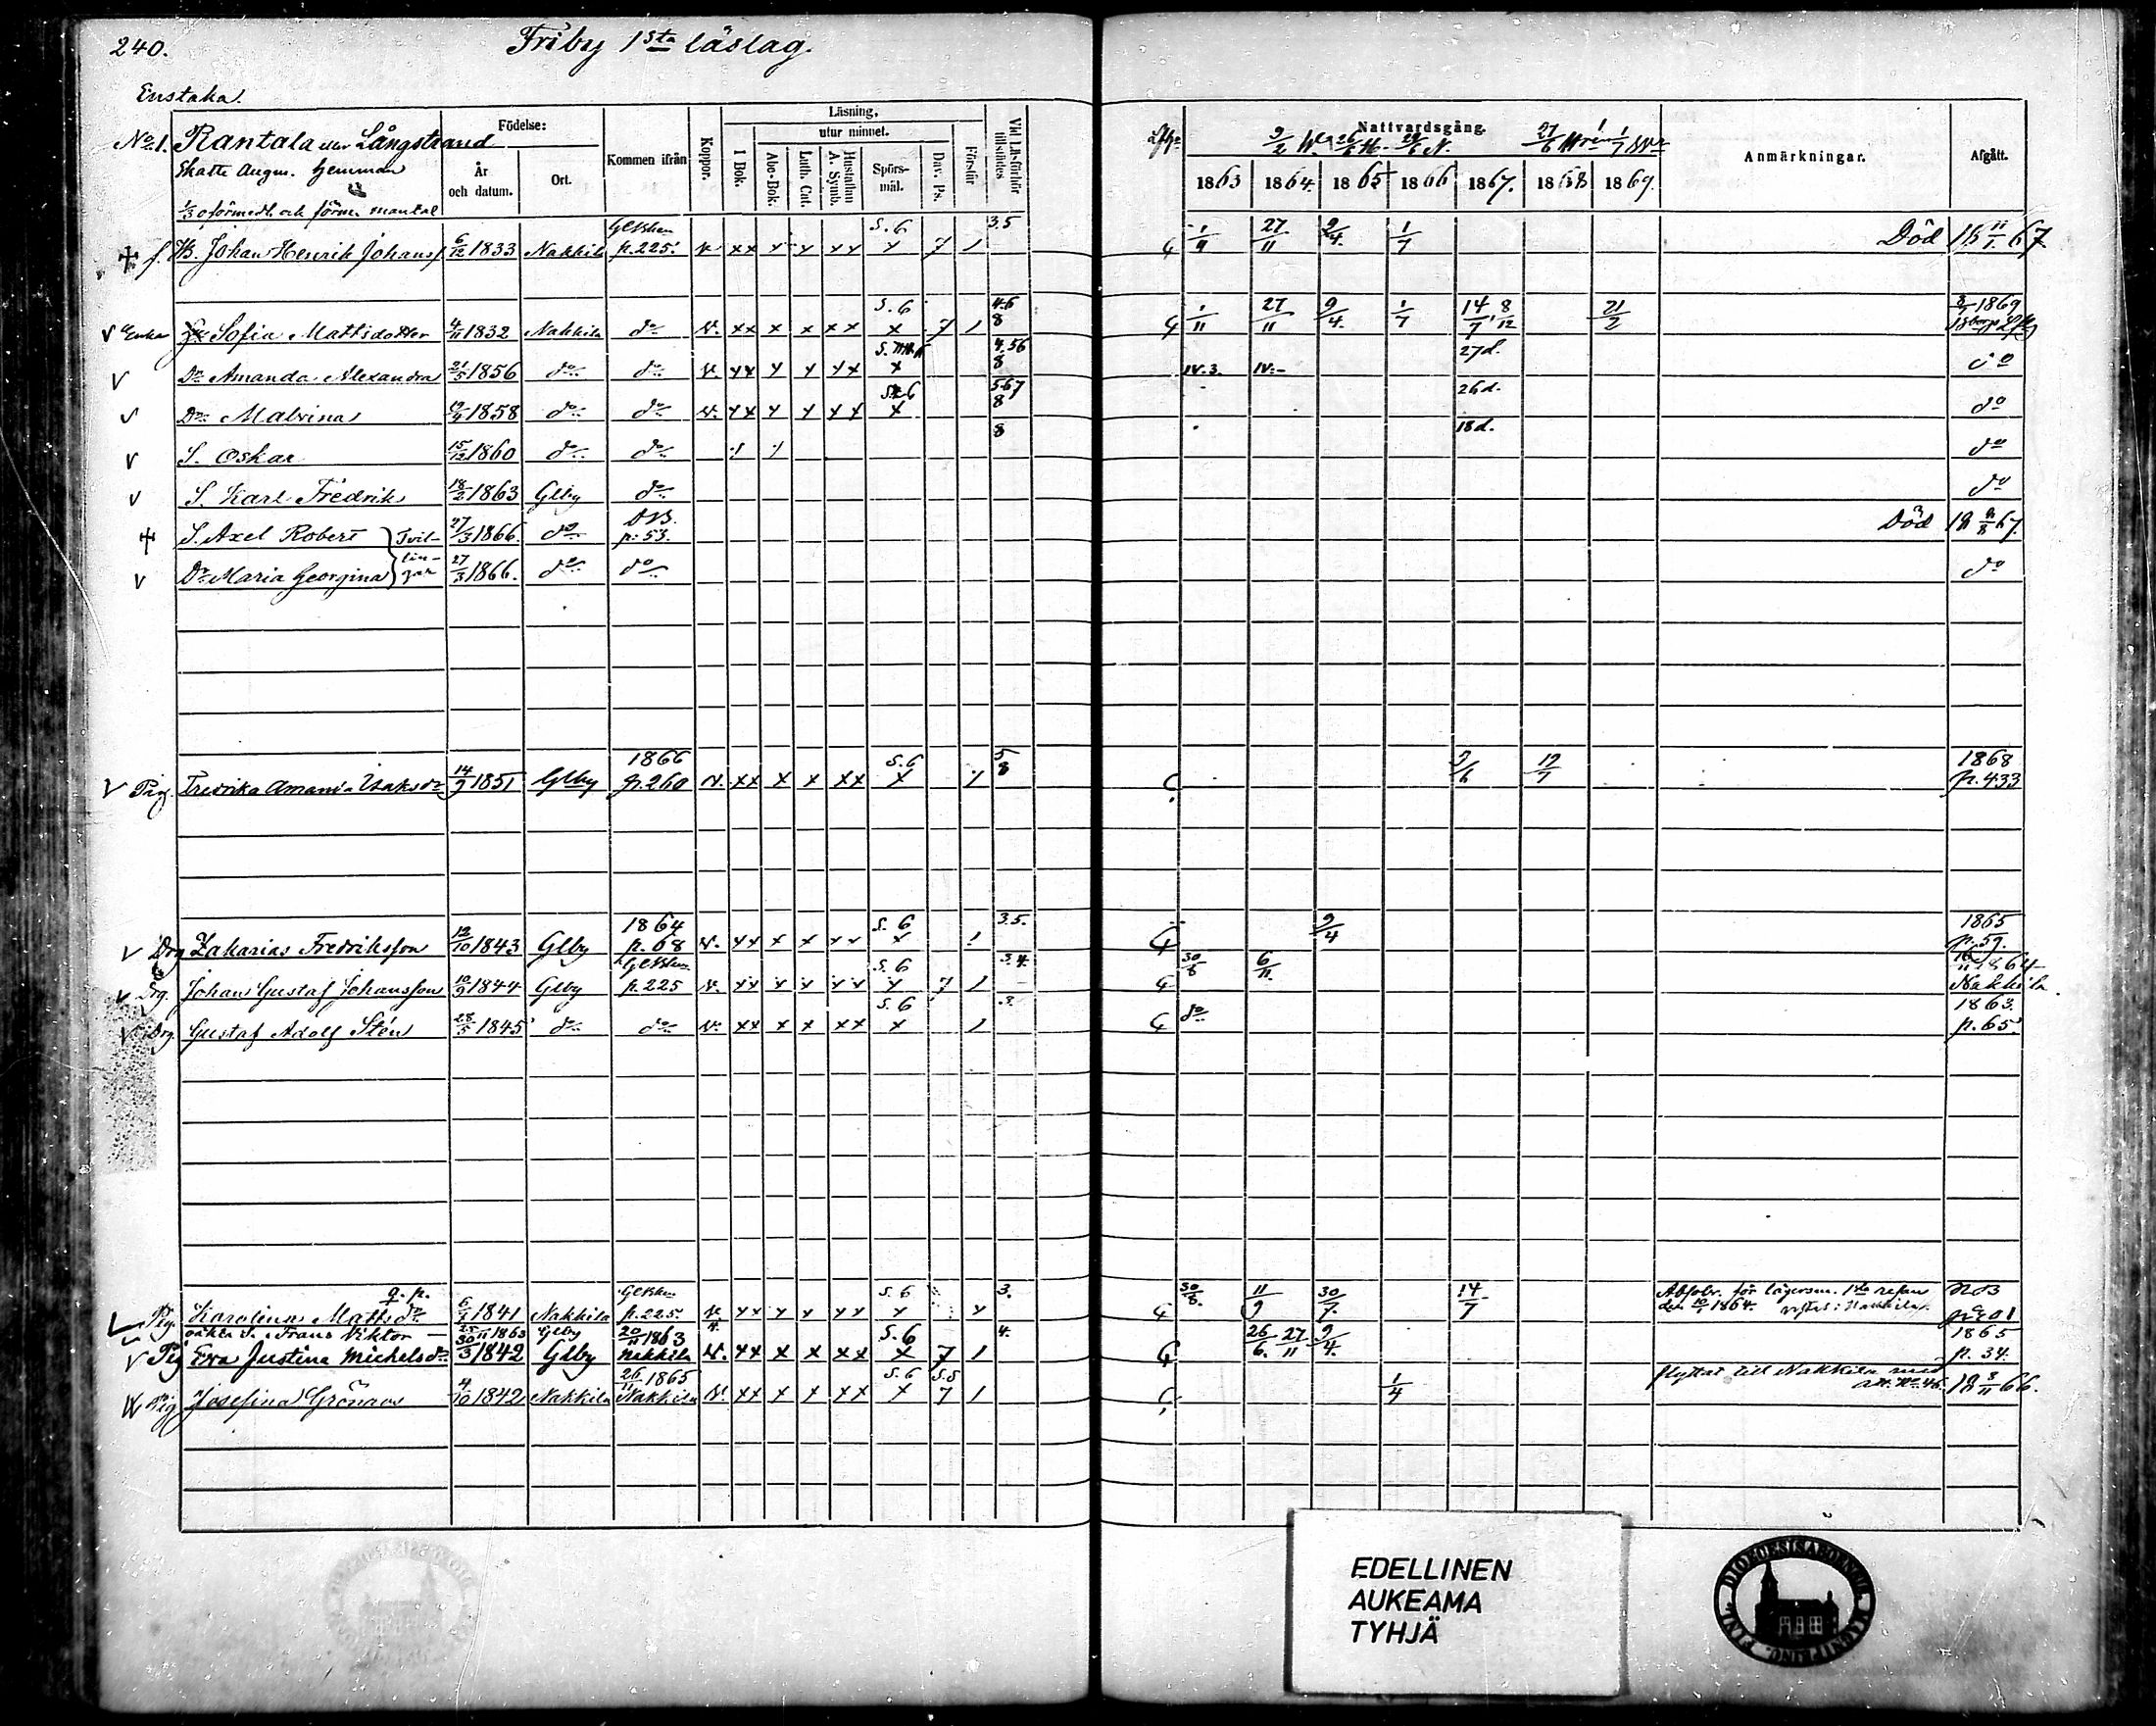 240.
Friby 1sta läslag.
Enstaka.
No 1. Rantala eller Långstrand
Skatte Augm. hemman
1/3 oförmedt. och förm. mantal
Födelse:
År och datum.
Ort.
Kommen ifrån
Koppor.
Läsning,
utur minnet.
I Bok.
Abc-Bok.
Luth. Cat.
Hustaflan A. Symb.
Spörs-mål.
Dav. Ps.
Förstår
Vid Läsförhör tillstädes
Nattvardsgång.
1863 1864. 1865 1866 1867. 1868 1869.
Anmärkningar.
Afgått.
B. Johan Henrik Johanss 6/12 1833 Nakkila p. 225. v xx x x xx S. 6 x 7 1 3.5 1/11 27/11 2/4. 1/7 Död 11/1 67
Enka Sofia Mattsdotter 4/11 1832 Nakkila do v. xx x x xx S. 6 x 7 1 4.6 8 1/11 27/11 9/4. 1/7 14/7 8/12 21/2 1869
Dr Amanda Alexandra 21/5 1856 do do v. xx x x xx x 4.56 8 IV.3. IV.- 27d. do
Dr Malvina 1858 do do v. xx x x xx x 567 8 26d. do
S. Oskar 15/12 1860 do do 8 18d. do
S. Karl Fredrik 18/2 1863 Glby do do
S. Axel Robert Tvil- 27/3 1866. do p. 53. Död 67.
lin-
Dr Maria Georgina gar 27/3 1866. do do do
Pig. Fredrika Amanda Isaksdr 14/9 1851 Glby 1866 p. 260 v. xx x x xx S. 6 x 5 8 9/6 12/7 1868 p. 433
Drg Zakarias Fredriksson 12/10 1843 Glby 1864 p. 68 v. xx x x xx S. 6 x 1 3.5. 9/4 1865 p. 59.
Drg. Johan Gustaf Johansson 10/9 1844 Glby p. 225 v. xx x x xx S. 6 x 7 1 3.4. 30/8 6/11 1864 Nakkila
Drg. Gustaf Adolf Stén 28/5 1845 do do v. xx x x xx S. 6 x 1 3. do 1863. p. 65.
Pig. Karolina Mattsdr 6/7 1841 Nakkila p. 225. v xx x x xx S. 6 x x 3. 30/8. 11/9 30/7. 14/7 Absolv. för lägersm. 1sta resan
den 1864. Nakkila.
oäkta S. Frans Viktor 25/11 1863 Glby
Pig Eva Justina Michelsdr 30/3 1842 Glby 20/11 1863 Nakkila v. xx x x xx S. 6 x 7 1 4. 26/6. 27/11 9/4. 1865 p. 34.
Pig Josefina Grönroos 4/10 1842 Nakkila 26/11 1865 Nakkila v. xx x x xx S. 6 x S.5 7 1 1/4 flyttat till Nakkila med
att. No 46. 66.
EDELLINEN
AUKEAMA
TYHJÄ